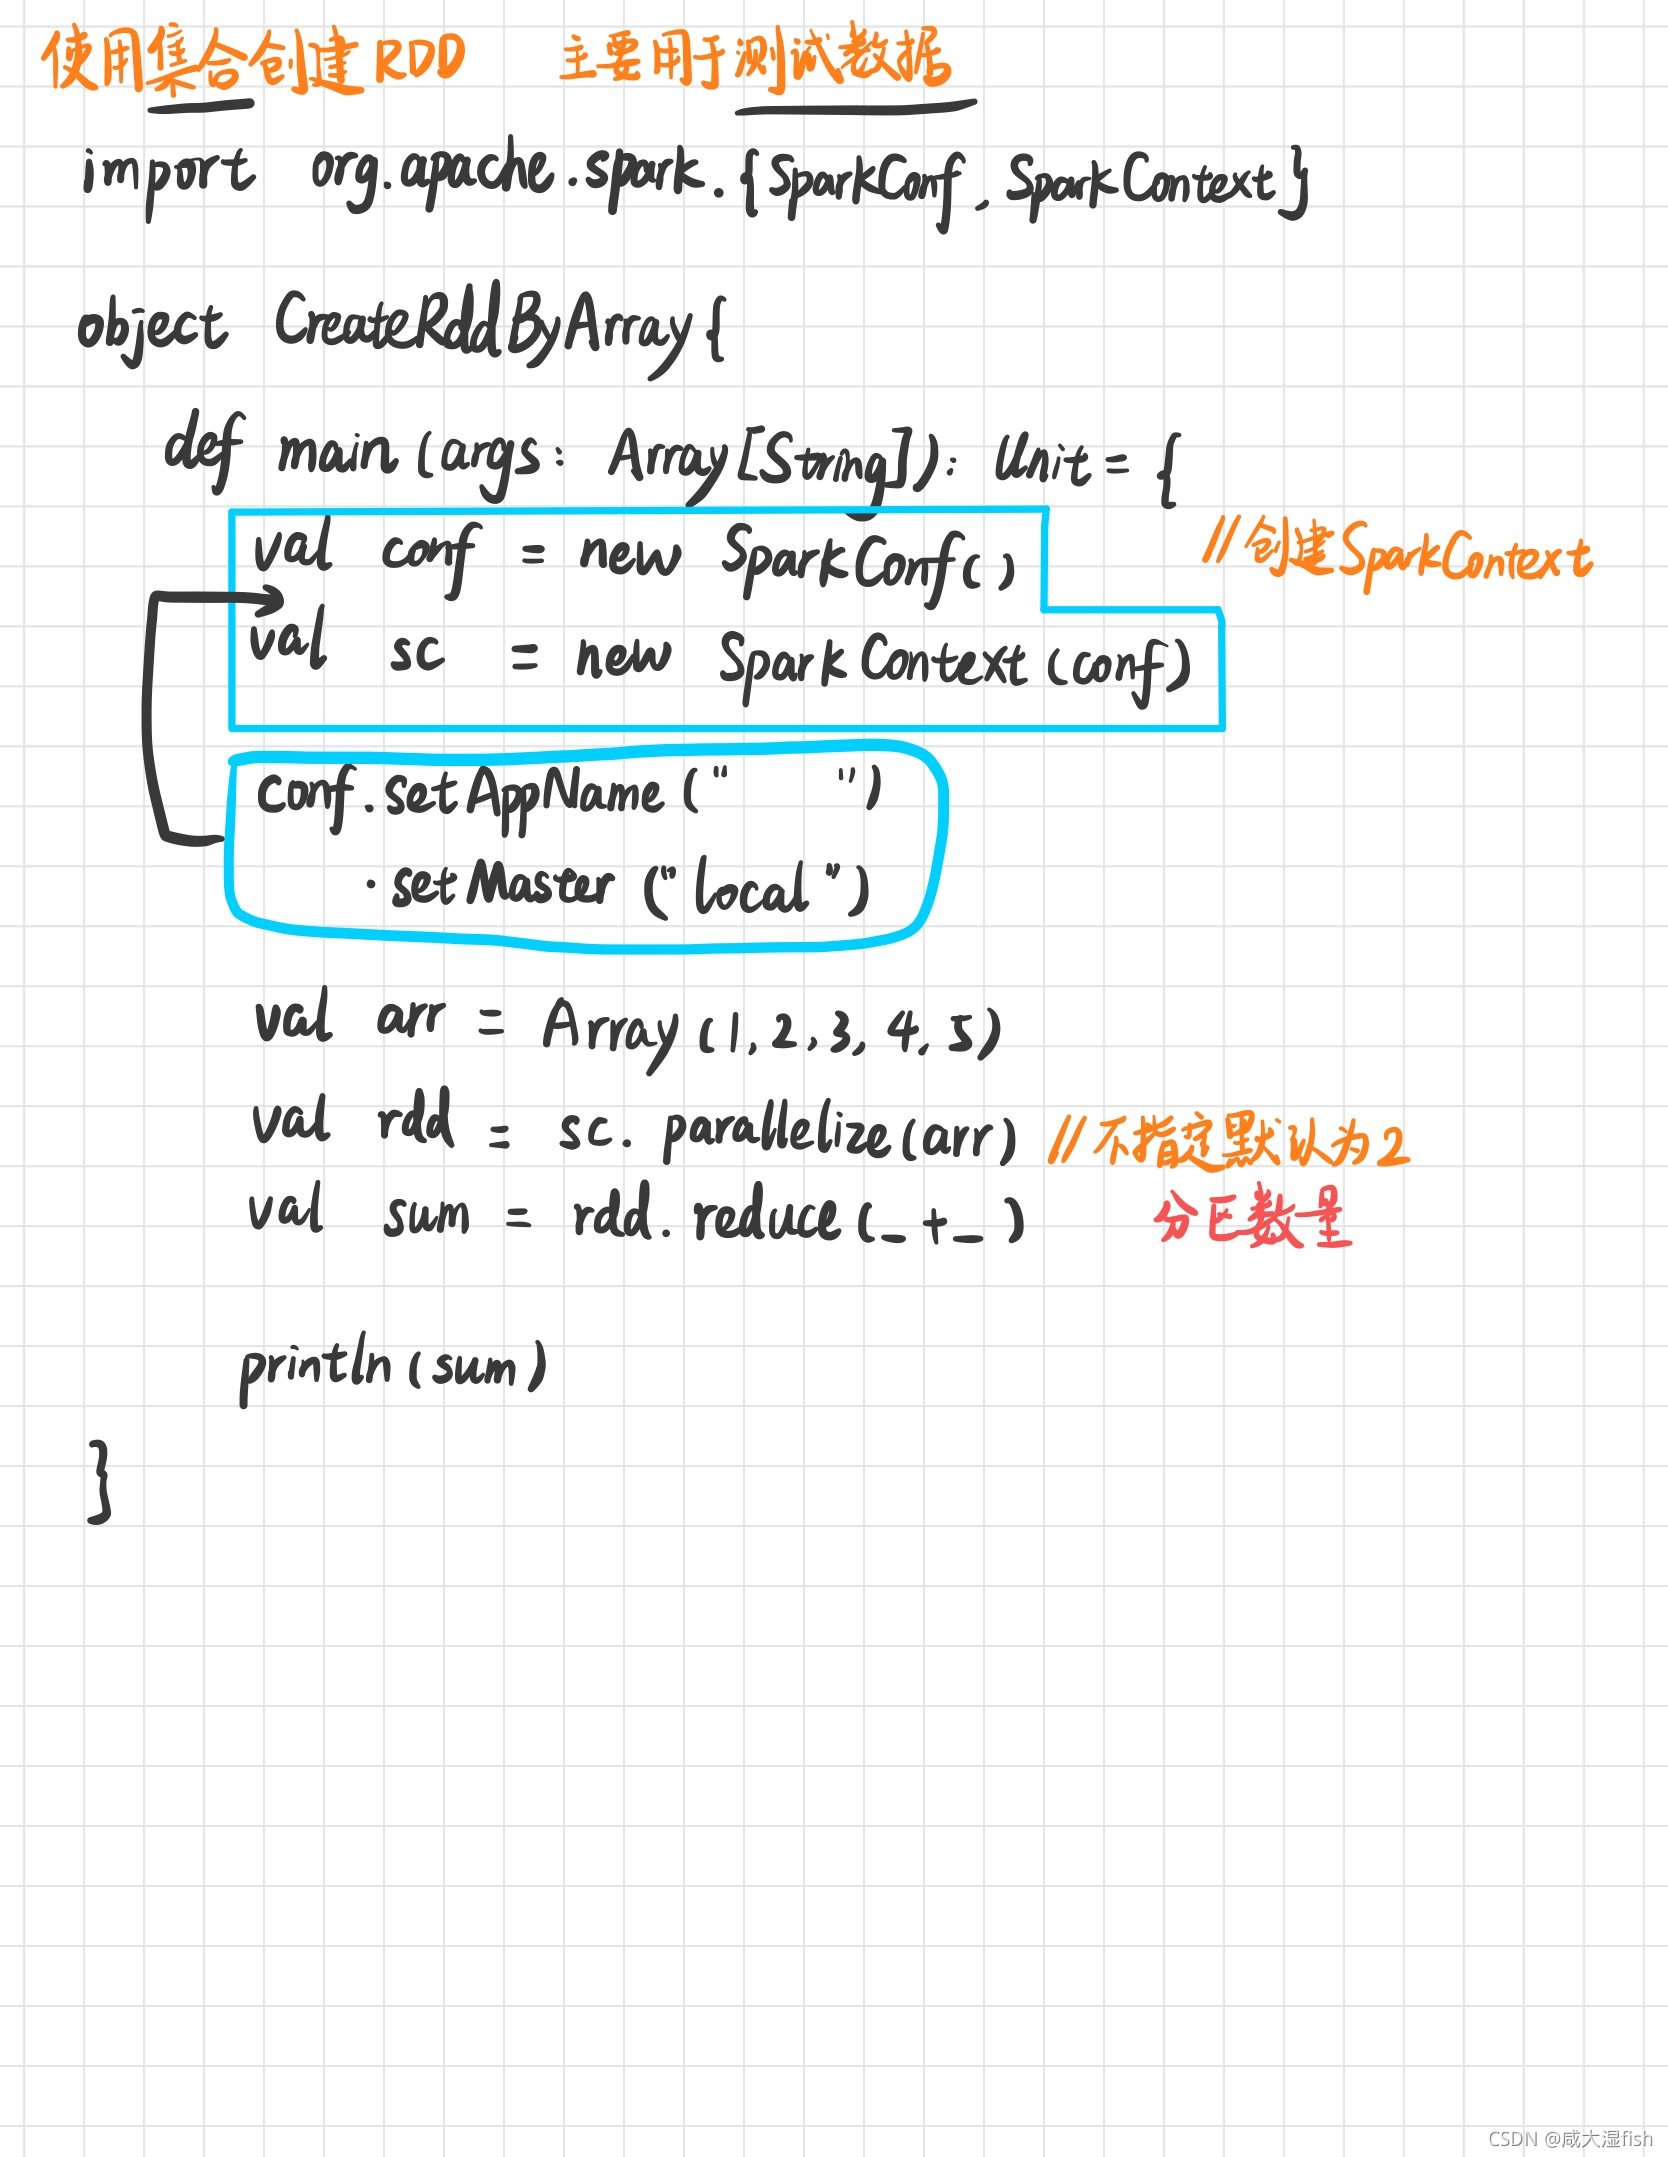 使用集合创建RDD 主要用于测试数据
import org.apache.spark.{SparkConf, SparkContext}
object CreateRddByArray{
def main(args: Array[String]): Unit = {
val conf = new SparkConf() //创建SparkContext
val sc = new SparkContext(conf)
conf.setAppName("      ")
.setMaster("local")
val arr = Array(1,2,3,4,5)
val rdd = sc.parallelize(arr) //不指定默认为2
val sum = rdd.reduce(_+_) 分区数量
println(sum)
}
CSDN @咸大湿fish